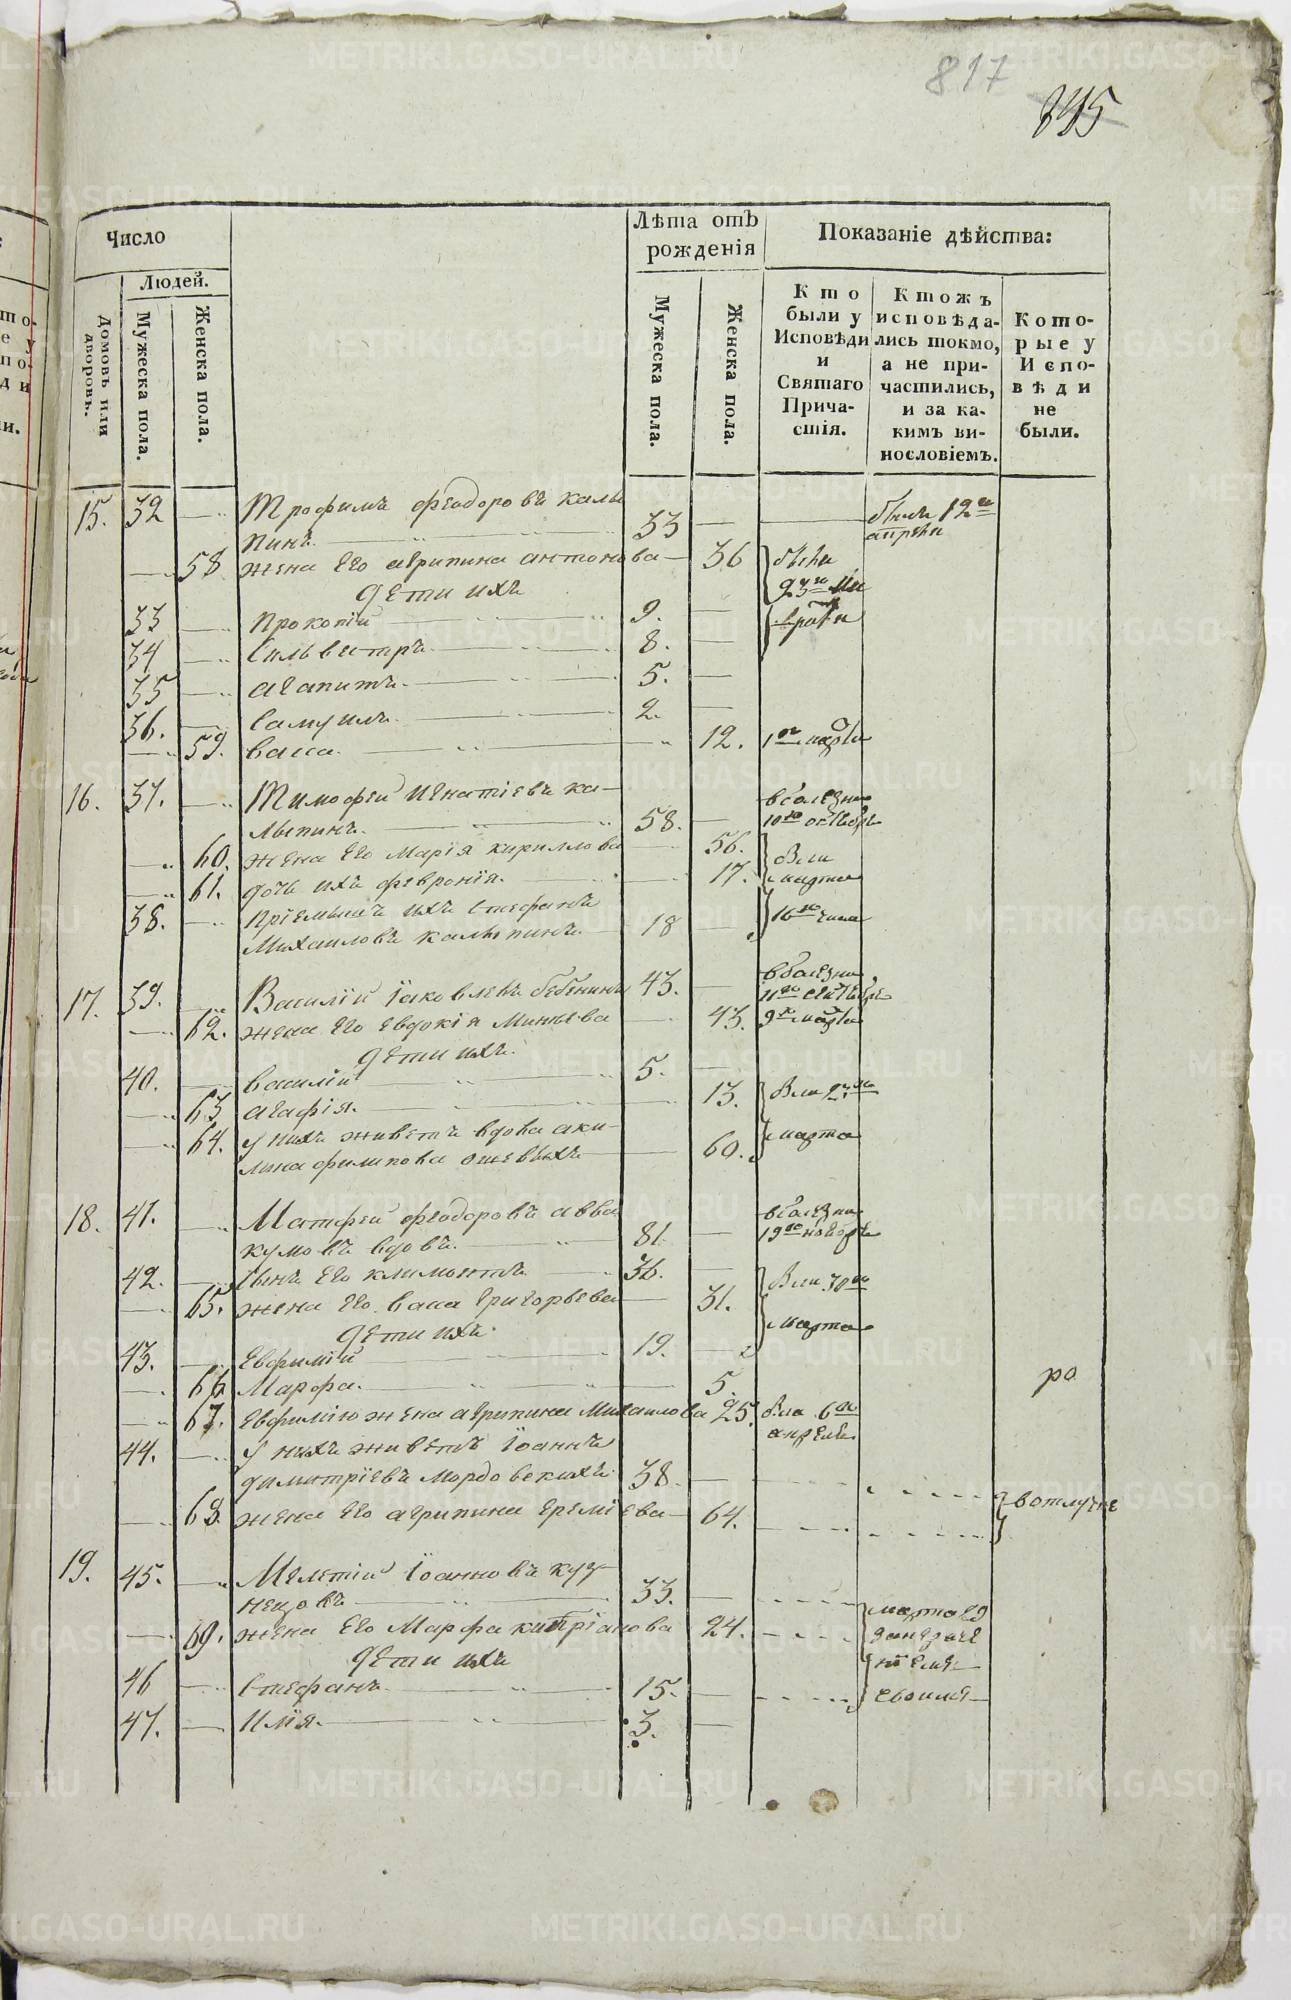 817
845
Число
Лѣта отъ рожденія
Показаніе дѣйства:
Людей.
Домовъ или дворовъ.
Мужеска пола.
Женска пола.
Мужеска пола.
Женска пола.
Кто были у Исповѣди и Святаго Причастія.
Ктожъ исповѣдались токмо, а не причастились, и за какимъ винословіемъ.
Которые у Исповѣди не были.
15. 32 Трофимъ Феодоровъ Калы
пинъ. 33 былъ 12го апрѣля
58 жена его Агрипина Антонова 36 были 23го
дети ихъ
33 Прокопій 9.
34 Сильвестръ 8.
35 Агапитъ. 5.
36. Самуилъ. 2.
59. Васса. 12. 1го марта
16. 37. Тимофей Игнатіевъ Ка-
лыпинъ. 58. в болезни 10го октября
60. жена его Марія Кириллова 56. были
61. дочь ихъ Февронія. 17. марта
38. пріемышъ ихъ Стефанъ 16го
Михаиловъ Калыпинъ. 18
17. 39. Василій Іаковлевъ Бебенинъ 43. в болезни 11го
62. жена его Евдокія Минеева 43. 9го марта
дети ихъ.
40. Василій 5.
63 Агафія. 13. были 27го
64. у нихъ живетъ вдова Аки-
лина Филипова Ошевыхъ 60. марта
18. 41. Матфей Феодоровъ Авва
кумовъ вдовъ. 81. в болезни 19го ноября
42. сынъ его Климонтъ 36. были 30го
65. жена его Васса Григорьева 31.
дети ихъ. марта
43. Евфимій 19.
66 Марфа. 5. ро
67. Евфимію жена Агрипина Михаилова 25. была 6го апреля
44. у нихъ живетъ Іоаннъ
Димитріевъ Мордовскихъ 38. в отлучке
68. жена его Агрипина Еремѣева 64.
19. 45. Мелетій Іоанновъ Куз-
нецовъ 33. марта 29
69. жена его Марфа Кипріанова 24.
дети ихъ
46 Стефанъ 15.
47. Илія. 3.
METRIKI.GASO-URAL.RU